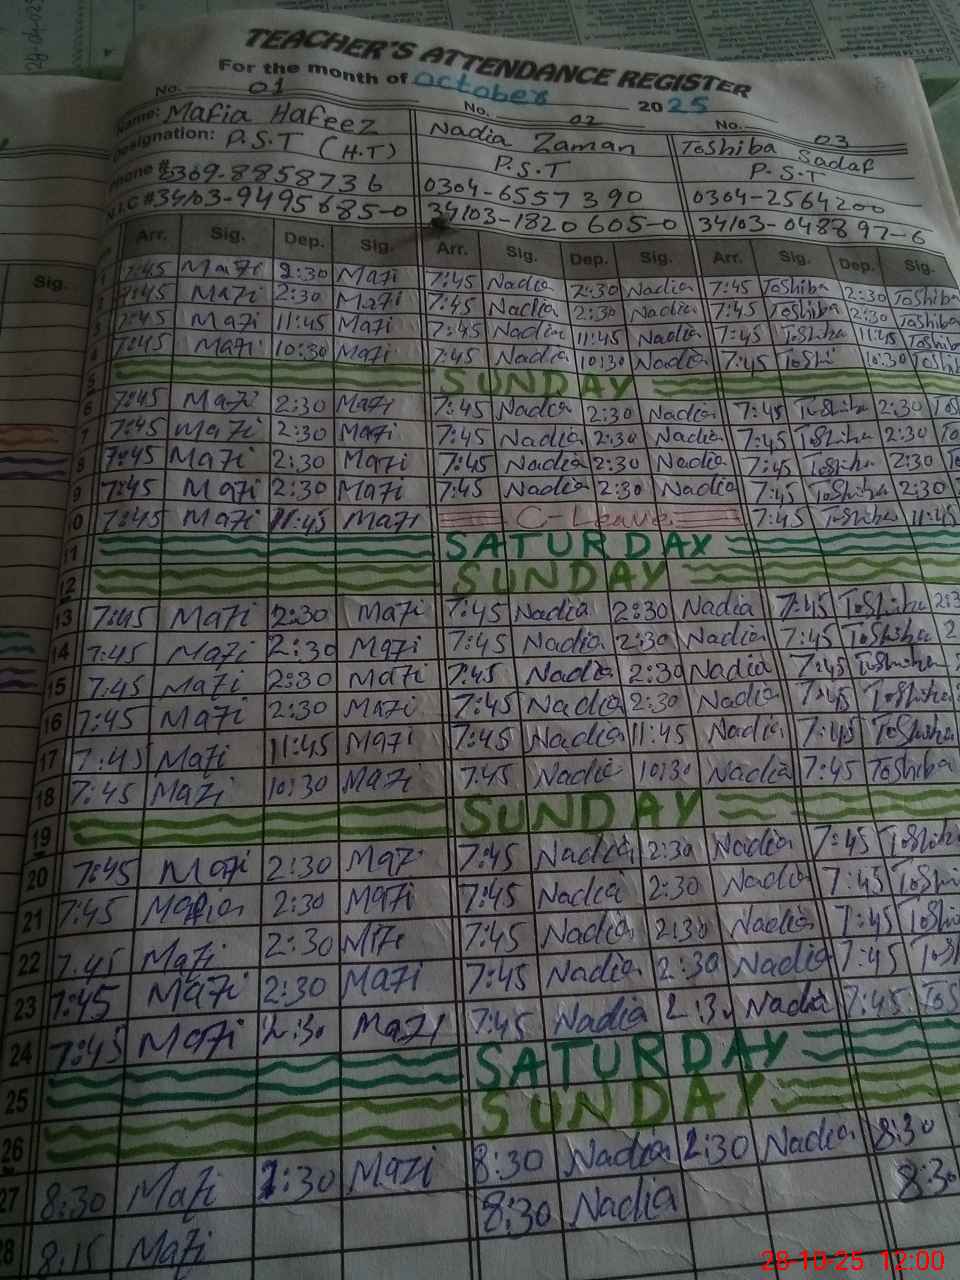 TEACHER'S ATTENDANCE REGISTER
For the month of October 2025
No. 01 No. 02 No. 03
Name: Mafia Hafeez Nadia Zaman Toshiba Sadaf
Designation: P.S.T (H.T) P.S.T P.S.T
Phone # 0309-8858736 0304-6557390 0304-2564200
N.I.C # 34103-9495685-0 34103-1820605-0 34103-048897-6
Sig. Arr. Sig. Dep. Sig. Arr. Sig. Dep. Sig. Arr. Sig. Dep. Sig.
1 7:45 Mafi 2:30 Mafi 7:45 Nadia 2:30 Nadia 7:45 Toshiba 2:30 Toshiba
2 7:45 Mafi 2:30 Mafi 7:45 Nadia 2:30 Nadia 7:45 Toshiba 2:30 Toshiba
3 7:45 Mafi 11:45 Mafi 7:45 Nadia 11:45 Nadia 7:45 Toshiba 11:45 Toshiba
4 7:45 Mafi 10:30 Mafi 7:45 Nadia 10:30 Nadia 7:45 Toshi 10:30 Toshib
5 SUNDAY
6 7:45 Mafi 2:30 Mafi 7:45 Nadia 2:30 Nadia 7:45 Toshiba 2:30 Tos
7 7:45 Mafi 2:30 Mafi 7:45 Nadia 2:30 Nadia 7:45 Toshiba 2:30 To
8 7:45 Mafi 2:30 Mafi 7:45 Nadia 2:30 Nadia 7:45 Toshiba 2:30 To
9 7:45 Mafi 2:30 Mafi 7:45 Nadia 2:30 Nadia 7:45 Toshiba 2:30
10 7:45 Mafi 11:45 Mafi C-Leave 7:45 Toshiba 11:45
11 SATURDAY
12 SUNDAY
13 7:45 Mafi 2:30 Mafi 7:45 Nadia 2:30 Nadia 7:45 Toshiba 2:3
14 7:45 Mafi 2:30 Mafi 7:45 Nadia 2:30 Nadia 7:45 Toshiba 2
15 7:45 Mafi 2:30 Mafi 7:45 Nadia 2:30 Nadia 7:45 Toshiba
16 7:45 Mafi 2:30 Mafi 7:45 Nadia 2:30 Nadia 7:45 Toshiba
17 7:45 Mafi 11:45 Mafi 7:45 Nadia 11:45 Nadia 7:45 Toshiba
18 7:45 Mafi 10:30 Mafi 7:45 Nadia 10:30 Nadia 7:45 Toshiba
19 SUNDAY
20 7:45 Mafi 2:30 Maf 7:45 Nadia 2:30 Nadia 7:45 Toshiba
21 7:45 Mafia 2:30 Mafi 7:45 Nadia 2:30 Nadia 7:45 Toshi
22 7:45 Mafi 2:30 7:45 Nadia 2:30 Nadia 7:45 Toshi
23 7:45 Mafi 2:30 Mafi 7:45 Nadia 2:30 Nadia 7:45 Tosh
24 7:45 Mafi 2:30 Mafi 7:45 Nadia 2:30 Nadia 7:45 Tos
25 SATURDAY
26 SUNDAY
27 8:30 Mafi 2:30 Mafi 8:30 Nadia 2:30 Nadia 8:30
28 8:15 Mafi 8:30 Nadia 8:30
28-10-25 12:00